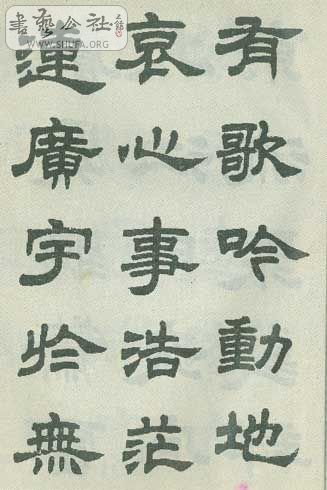 有歌吟動地
哀心事浩茫
連廣宇於無
書藝公社
www.SHUFA.ORG